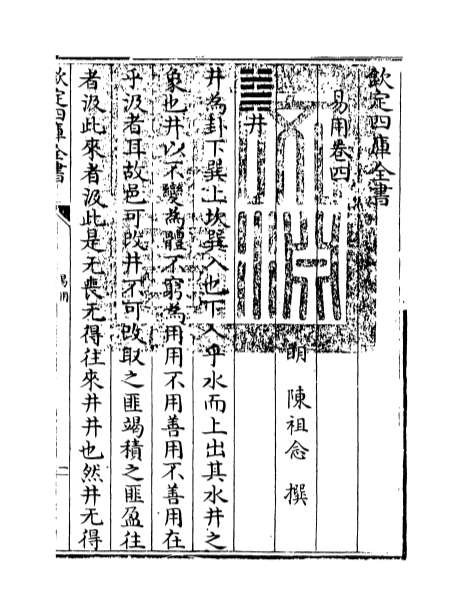 欽定四庫全書
易用卷四
明 陳祖念 撰
䷯井
井為卦下巽上坎巽入也下入乎水而上出其水井之
象也井以不變為體不窮為用用不用善用不善用在
乎汲者耳故邑可改井不可改取之匪竭積之匪盈往
者汲此來者汲此是无喪无得往來井井也然井无得
欽定四庫全書
易用